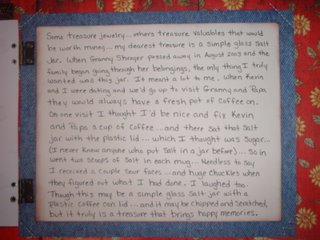 Some treasure jewelry... others treasure valuables that would
be worth money... my dearest treasure is a simple glass Salt
Jar. When Granny Stringer passed away in August 2003 and the
family began going through her belongings, the only thing I truly
wanted was this jar. It meant a lot to me. When Kevin
and I were dating and we'd go up to visit Granny and Papa,
they would always have a fresh pot of Coffee on.
On one visit I thought I'd be nice and fix Kevin
and Papa a cup of Coffee... and there sat that Salt
jar with the plastic lid... which I thought was Sugar.
(I never knew anyone who put Salt in a jar before)... So in
went two scoops of Salt in each mug... Needless to say
I received a couple sour faces... and huge chuckles when
they figured out what I had done. I laughed too.
Though this may be a simple glass Salt jar with a
Plastic Coffee can lid... and it may be chipped and Scratched,
but it truly is a treasure that brings happy memories.